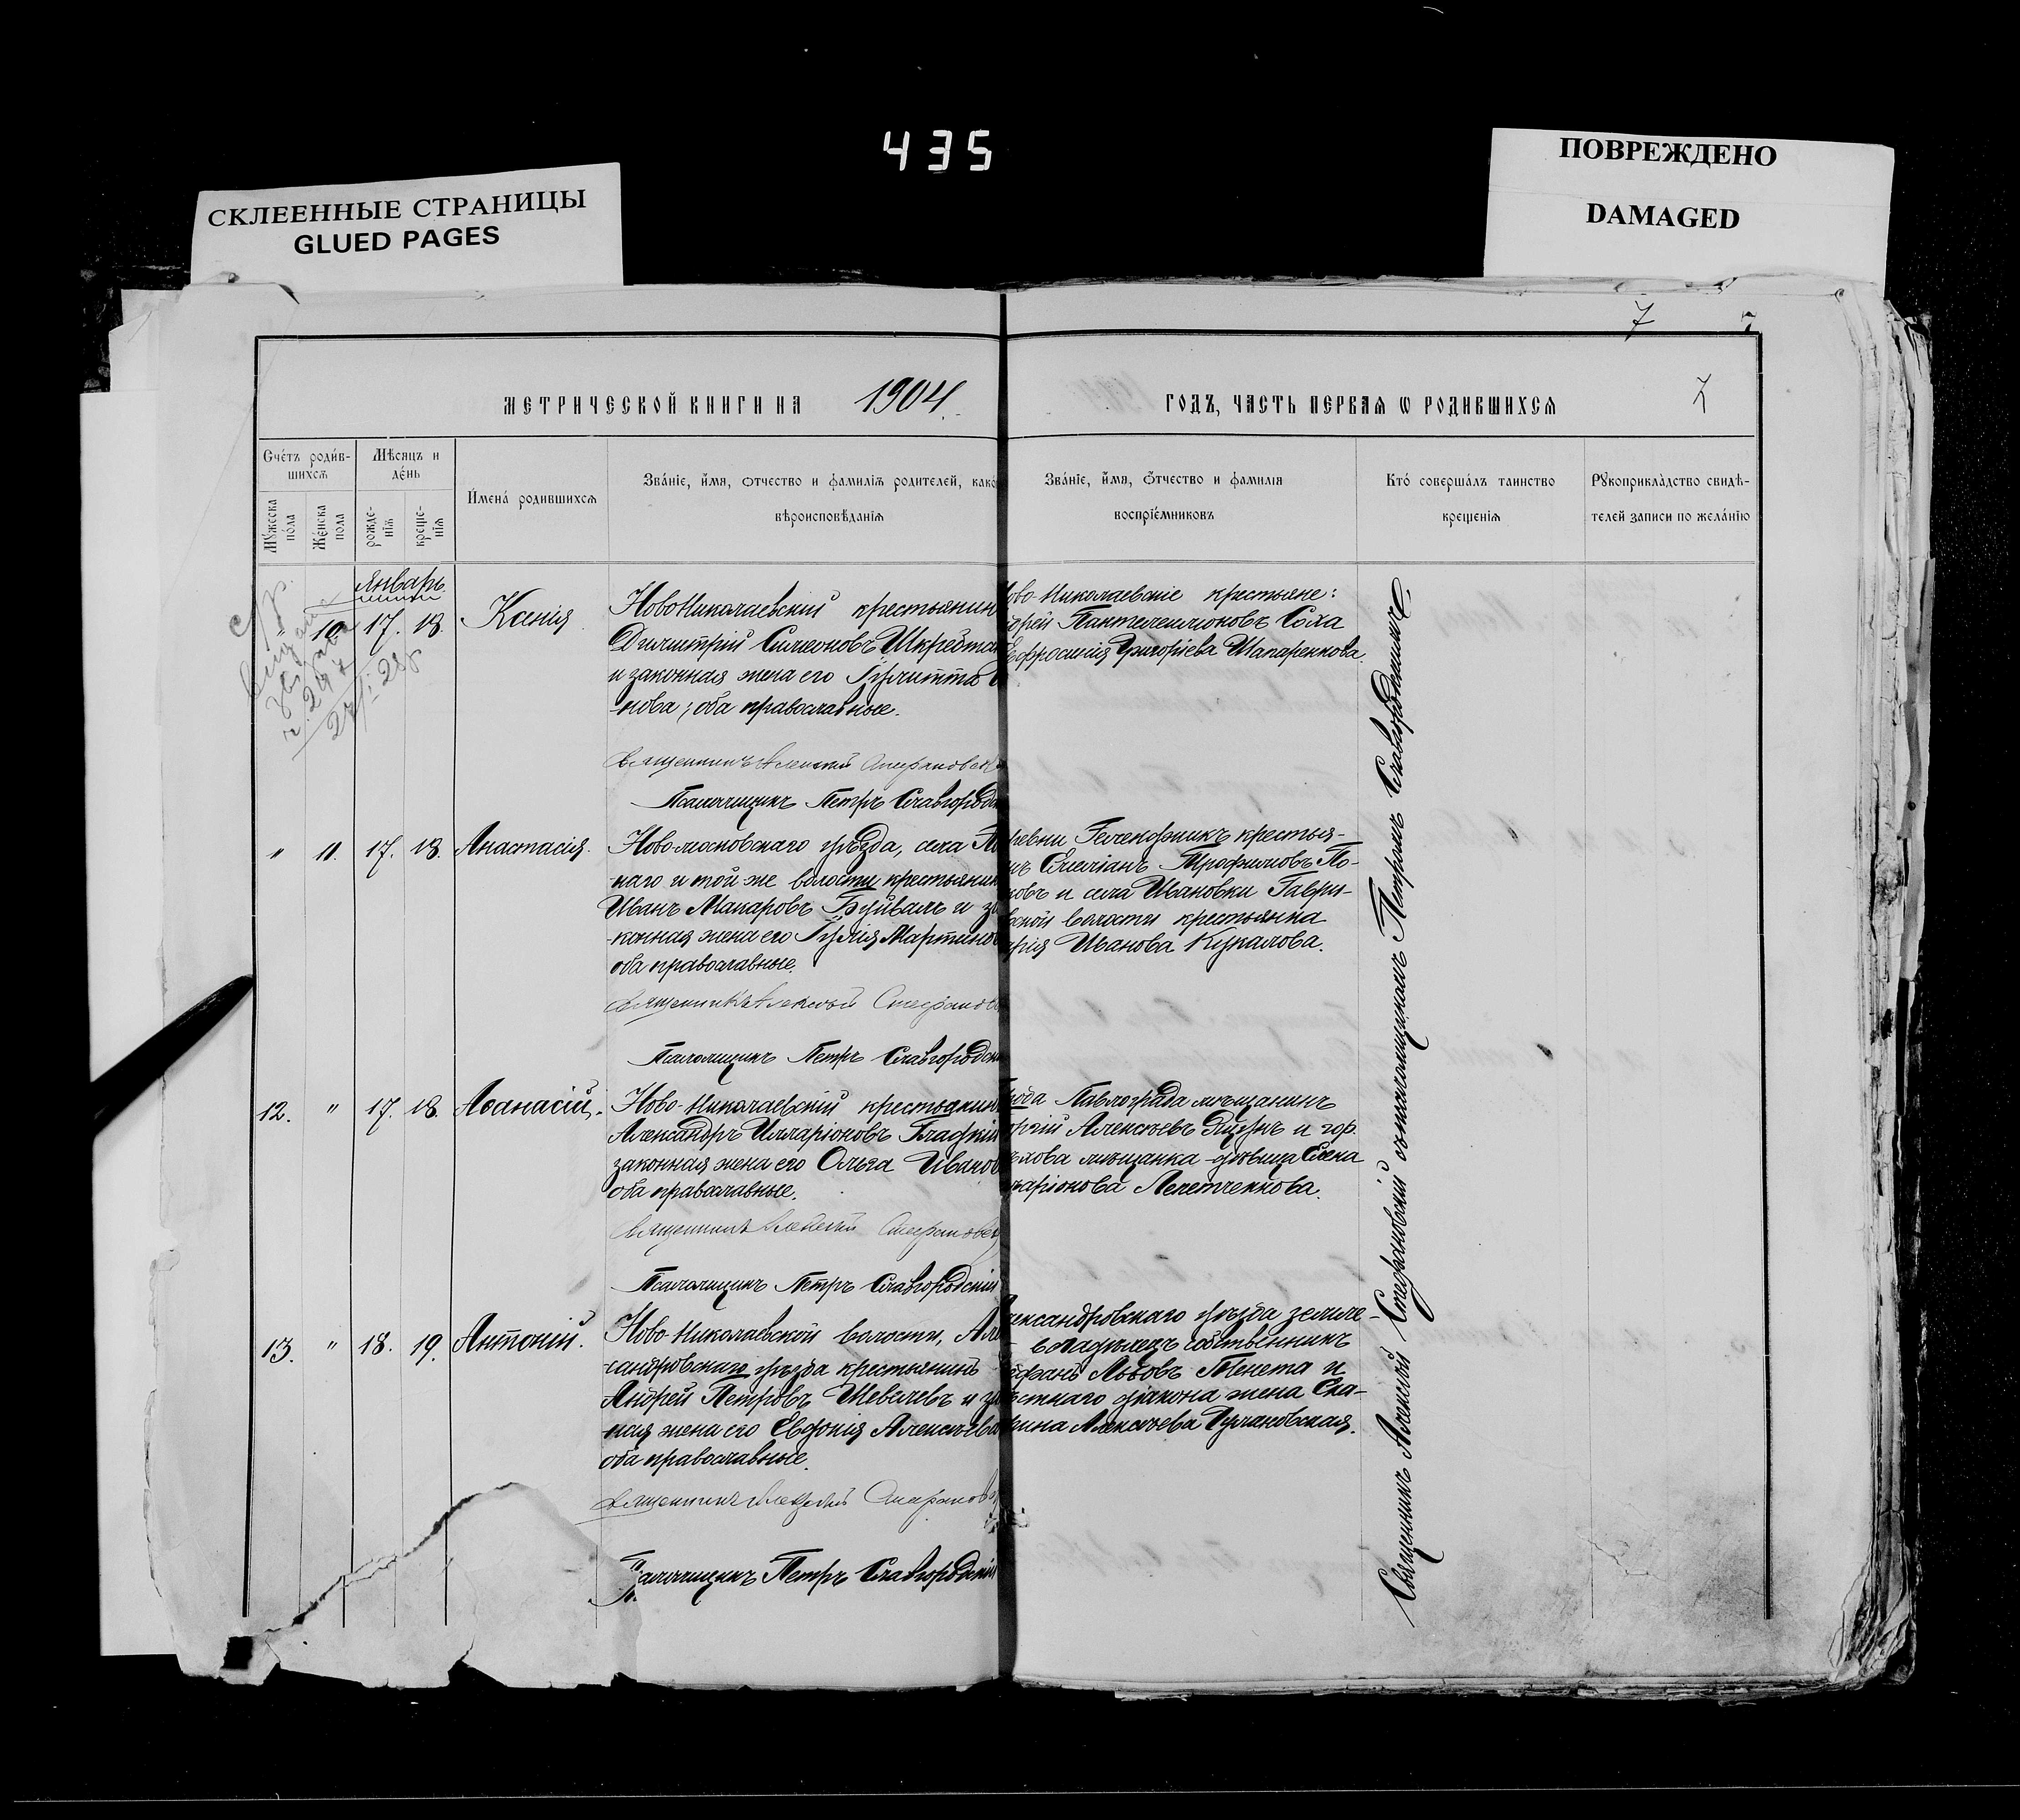 435
СКЛЕЕННЫЕ СТРАНИЦЫ
GLUED PAGES
ПОВРЕЖДЕНО
DAMAGED
7
МЕТРИЧЕСКОЙ КНИГИ НА 1904 ГОДЪ, ЧАСТЬ ПЕРВАЯ Ѡ РОДИВШИХСЯ
7
Счетъ родив-
шихся
Мужеска пола
Женска пола
Мѣсяцъ и
день
рожде-
нія
креще-
нія
Имена родившихся
Званіе, имя, отчество и фамилія родителей, како
вѣроисповѣданія
Званіе, имя, отчество и фамилія
воспріемниковъ
Кто совершалъ таинство
крещенія
Рукоприкладство свидѣ-
телей записи по желанію
Январь
" 10 17. 18. Ксенія
НовоНиколаевскій крестьянин
Димитрій Симеоновъ
и законная жена его Іулитта
нова; оба православные.
Священникъ Алексий Стефановск
Псаломщикъ Петръ Славгородс
ово-Николаевскіе крестьяне:
дрей Пантелеимоновъ Соха
Ефросинія Григоріева Шапаренкова.
" 11. 17. 18. Анастасія.
Новомосковскаго уѣзда, села
наго и той же волости крестьянин
Иванъ Макаровъ Буйвалъ и за
конная жена его Іулія Мартинов
оба православные.
Священникъ Алексий Стефанов
Псаломщикъ Петръ Славгородск
ревни Гелендзикъ крестья-
нъ Емеліанъ Трофимовъ По-
ковъ и села Ивановки Гаври-
вской волости крестьянка
арія Иванова Кукалова.
12. " 17. 18. Аѳанасій.
Ново-Николаевскій крестьянин
Александръ Илларіоновъ Гладкій
законная жена его Ольга Иванов
оба православные.
Священникъ Алексий Стефановск
Псаломщикъ Петръ Славгородскій
рода Павлограда мѣщанинъ
ргій Алексѣевъ Яцунъ и гор.
хова мѣщанка дѣвица Елена
ларіонова Лепетченкова.
13. " 18. 19. Антоній.
Ново-Николаевской волости, Але
сандровскаго уѣзда крестьянинъ
Андрей Петровъ Шевалевъ и за
ная жена его Евдокія Алексѣева
оба православные.
Священникъ Алексий Стефанов
Псаломщикъ Петръ Славгородскій
лександровскаго уѣзда землe-
владѣлецъ собственникъ
ефанъ Львовъ Тенета и
ѣстнаго діакона жена Ека-
рина Алексѣева Гулановская.
Священникъ Алексѣй Стефановскій съ псаломщикомъ Петромъ Славгородскимъ